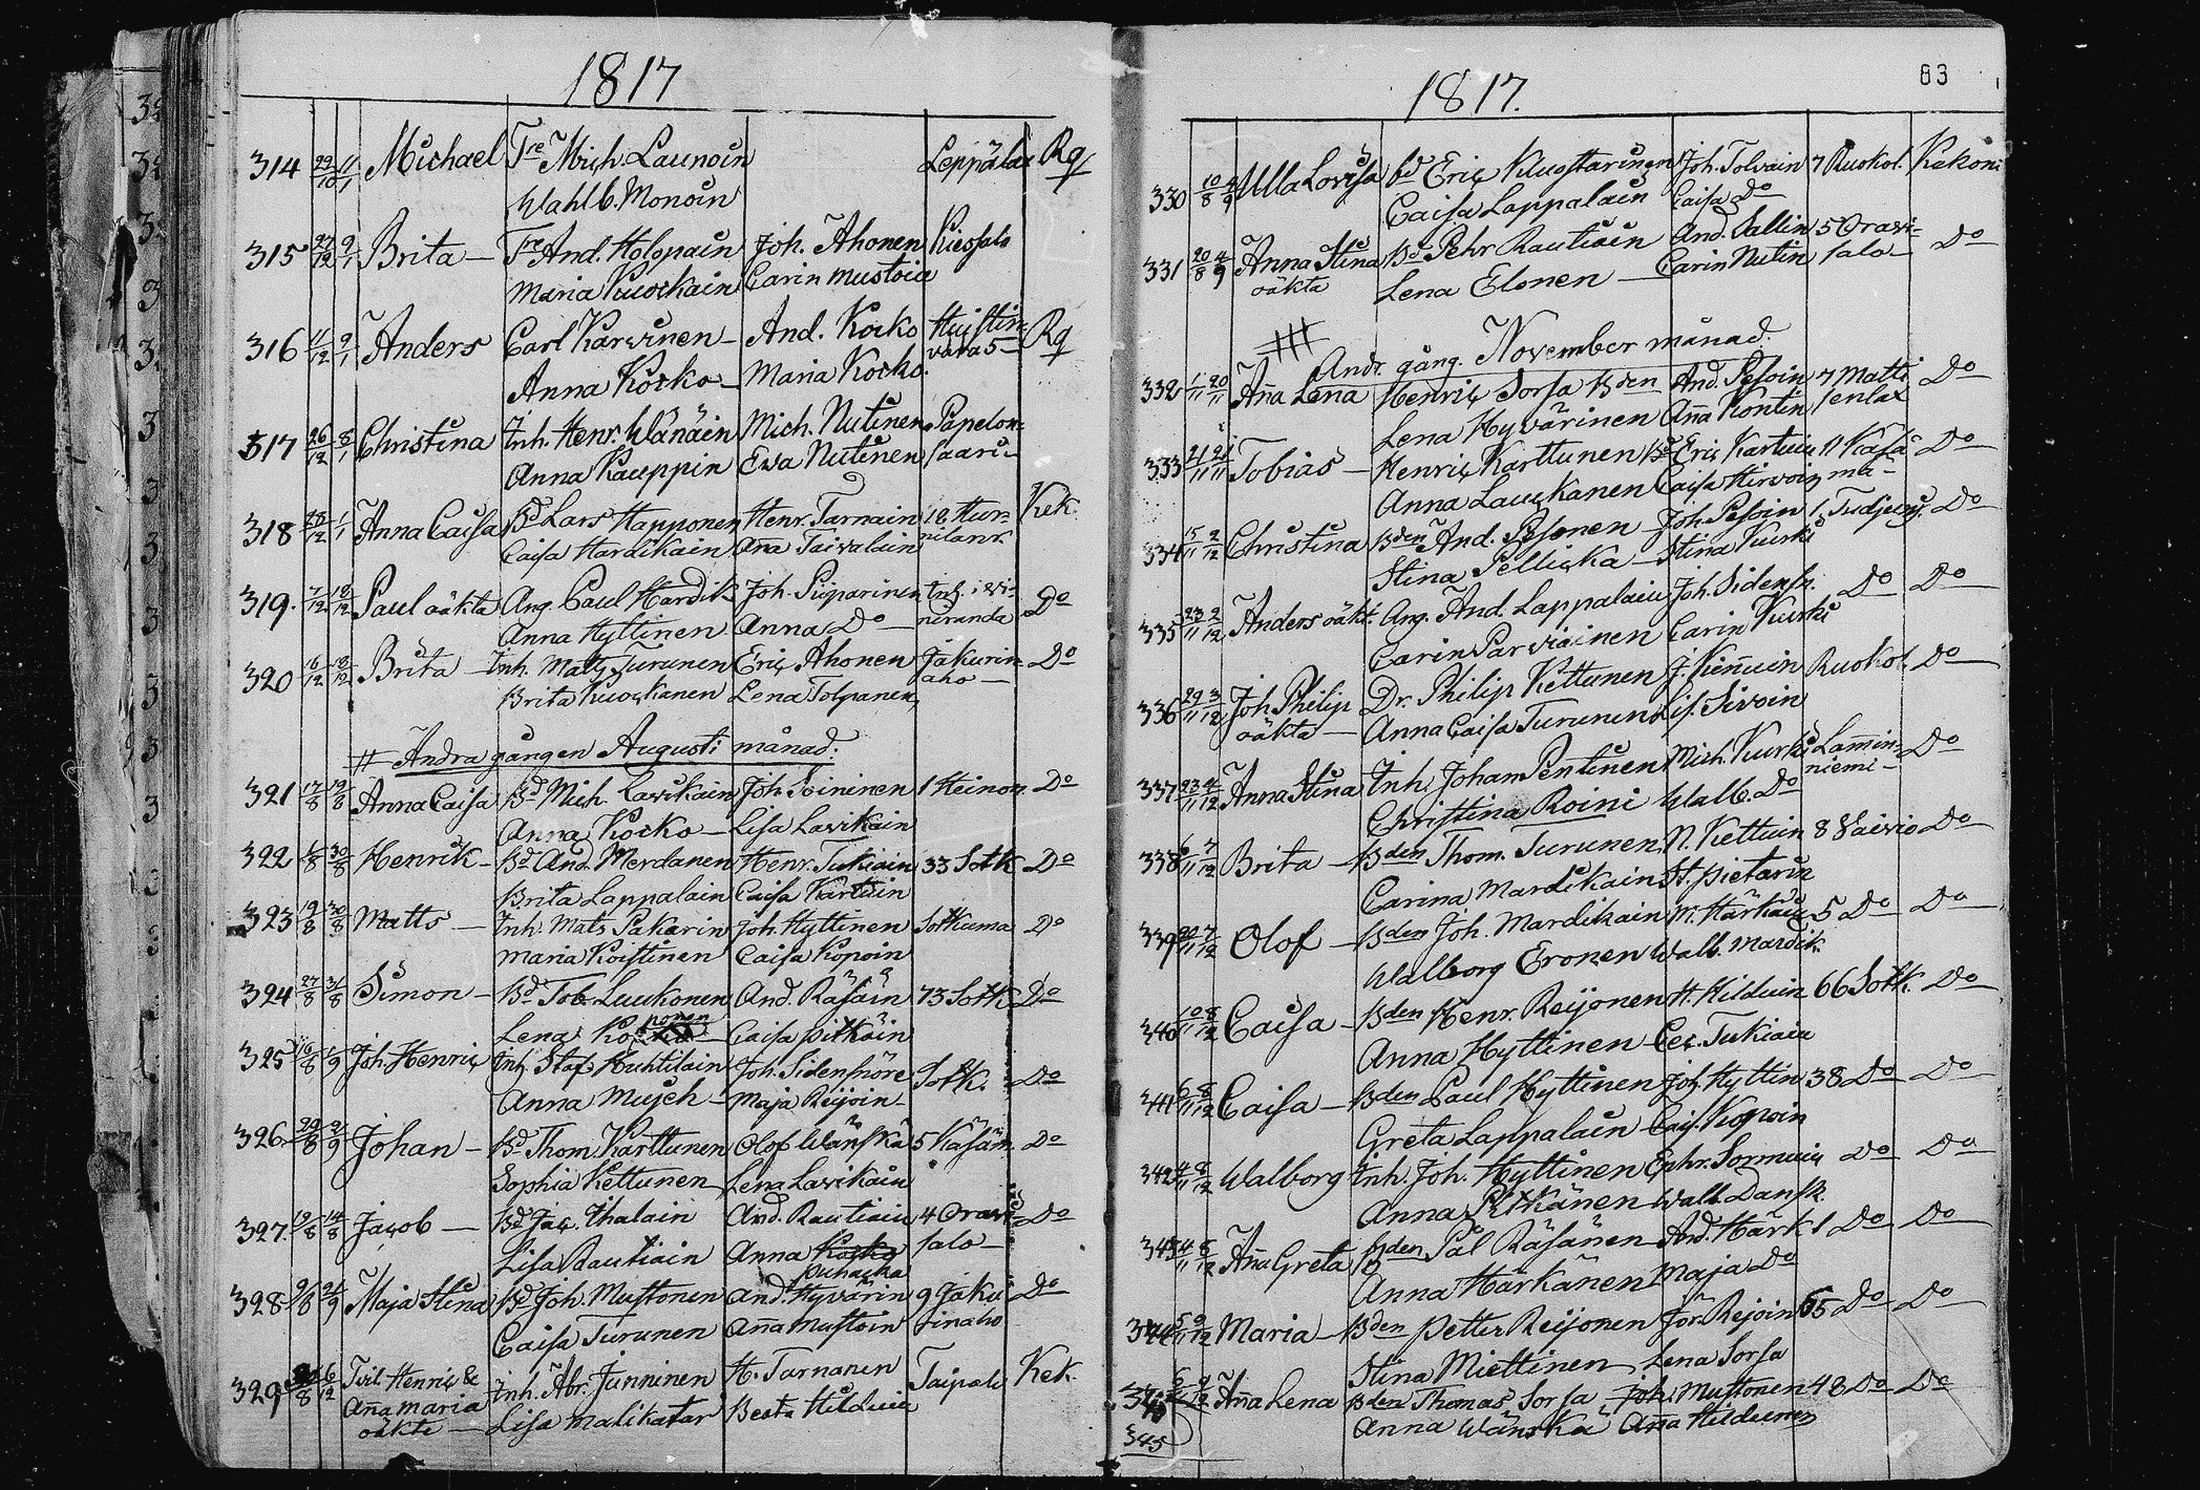 1817
314 22/10 11/1 Michael Tre Mich. Launoin Leppälax Rq
Wahlb. Monoin
315 27/12 9/1 Brita — Tre And. Holopain Joh. Ahonen Kiessalo
Maria Kuockain Carin Mustoin
316 11/12 9/1 Anders Carl Karvinen — And. Kocko Huistin= Rq
vara 5 —
Anna Kocko — Maria Kocko.
317 26/12 8/1 Christina Inh. Henr. Wänäin Mich. Nutinen Papelon=
Anna Kauppin Ewa Nutinen saari
318 28/12 1/1 Anna Caisa Bd Lars Happonen Henr. Tarnain 18 Kek.
Caisa Hardikain Aña Taivalain
319. 7/12 18/12 Paul oäkta Ang. Paul Hardik. Joh. Piiparinen Inh. Do
Anna Hyttinen Anna Do — niranda
320 16/12 18/12 Brita — Inh. Matts Turunen Eric Ahonen Jakurin= Do
Brita Kuockanen Lena Tolpanen aho —
# Andra gången Augusti månad.
321 17/8 19/8 Anna Caisa Bd Mich. Lavikain Joh. Soininen 1 Heinon. Do
Anna Kocko — Lisa Lavikain
322 /8 30/8 Henrik — Bd And. Merdanen Henr. Tukiain 33 Sotk Do
Brita Lappalain Caisa Kartuin
323 19/8 30/8 Matts — Inh. Mats Pakarin Joh. Hyttinen Sotkuma Do
Maria Koistinen Caisa Kopoin
324 27/8 31/8 Simon — Bd Tob. Luukonen And. Räsäin 73 Sotk Do
Lena Kopponen Caisa Pitkäin
325 16/8 1/9 Joh. Henric Inh. Staf. Huhtilain Joh. Sidensnöre Sotk. Do
Anna Musch — Maja Reijoin —
326. 29/8 2/9 Johan — Bd Thom. Karttunen Olof Wänskä 5 Käsäm. Do
Sophia Kettunen Lena Lavikain
327. 19/8 14/8 Jacob — Bd Jac. Ihalain And. Rautiain 4 Oravi= Do
Lisa Rautiain Anna Kocko salo —
Puhacka
328 Maja Stina Bd Joh. Mustonen And. Hyvärin 9 Jaku Do
Caisa Turunen Aña Mustoin rinaho
329 Tvil. Henric & Inh. Abr. Junninen H. Tarnanen Taipale Kek.
Aña Maria Lisa Malikatar Beata Hilduin
oäkte —
1817.
83
330 10/8 4/9 Ulla Lovisa bd Eric Kluostarinen Joh. Tolvain 7 Ruokol. Kekoni
Caisa Lappalain Caisa Do
331 20/8 4/9 Anna Stina Bd Pehr Rautiain And. Sallin 5 Oravi= Do
oäkta Lena Elonen — Carin Nutin salo —
Andr. gång. November månad.
332 1/11 20/11 Aña Lena Henric Sorsa Bden And. Pesoin 7 Matti Do
Lena Hyvärinen Aña Kontin senlax
333 21/11 21/11 Tobias — Henric Karttunen Bd Eric Kartuin 11 Käsä= Do
Anna Lauckanen Caisa Hirvoin mä —
334 15/11 2/12 Christina Bden And. Pesonen — Joh. Pesoin 1 Do
Stina Pellicka — Stina Kurki
335 23/11 2/12 Anders oäkt. Ang. And. Lappalain Joh. Sidensn. Do Do
Carin Parviainen Carin Kurki
336 29/11 3/12 Joh. Philip Dr. Philip Kettunen J. Kiñuin Ruokol. Do
oäkta — Anna Caisa Turunen Lis. Sivoin
337 23/11 4/12 Anna Stina Inh. Johan Pentinen Mich. Kurki Lam̃in= Do
Christina Roini Walb. Do niemi —
338 6/11 7/12 Brita — Bden Thom. Turunen N. Kettuin 8 Vaivio Do
Carina Mardikain St. Pietarin
339 20/11 7/12 Olof — Bden Joh. Mardikain M. Härkäin 5 Do Do
Walborg Eronen Walb. Mardik.
340 10/11 8/12 Caisa — Bden Henr. Reijonen H. Hilduin 66 Sotk. Do
Anna Hyttinen — Cec. Tukiain
341 6/11 8/12 Caisa — Bden Paul Hyttinen Joh. Hyttin 38 Do Do
Greta Lappalain Cais. Kopoin
342 4/11 8/12 Walborg Inh. Joh. Hyttinen Ephr. Sormuin Do Do
Anna Pitkänen Walb. Dansk.
343 4/11 8/12 Aña Greta Bden Pål Räsänen — And. Härk 1 Do Do
Anna Härkänen Maja Do
344 5/11 9/12 Maria — Bden Petter Reijonen Jör. Reijoin 65 Do Do
Stina Miettinen Lena Sorsa
Aña Lena Bden Thomas Sorsa Joh. Mustonen 48 Do Do
Anna Wänskä Aña Hildunen
345